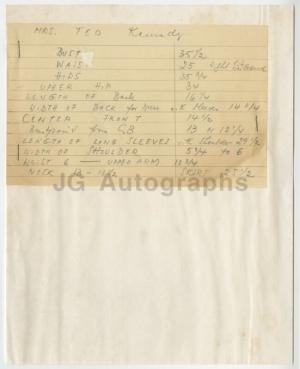 MRS. TED Kennedy
BUST 35 1/2
WAIST 25
HIPS 35 3/4
UPPER HIP 34
LENGTH OF Back 16 1/4
WIDTH OF BACK 14 3/4
CENTER FRONT 14 1/2
13
LENGTH OF LONG SLEEVES 23 1/2
WIDTH OF SHOULDER 5 3/4 to 6
UPPER ARM 10 3/4
NECK SKIRT 25 1/2
JG Autographs